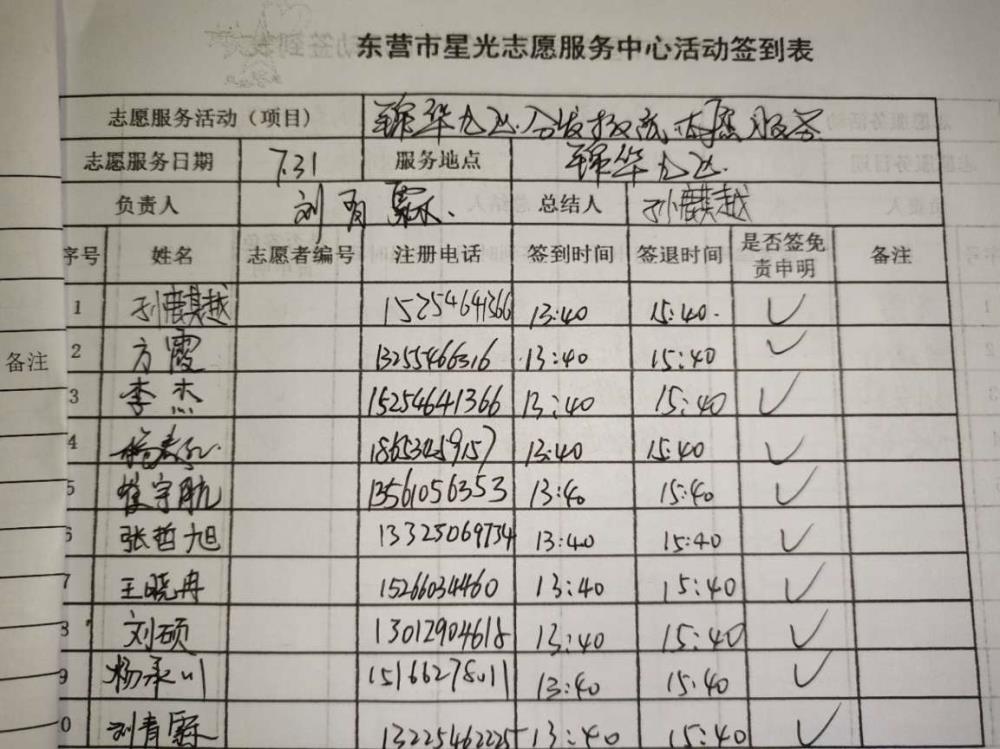 东营市星光志愿服务中心活动签到表
志愿服务活动（项目） 锦华九区 服务
志愿服务日期 7.31 服务地点 锦华九区
负责人 刘青霖 总结人 孙麒越
序号 姓名 志愿者编号 注册电话 签到时间 签退时间 是否签免责申明 备注
1 孙麒越 15254641366 13:40 15:40 ✓
备注
2 方霞 13255466316 13:40 15:40 ✓
3 李杰 15254641366 13:40 15:40 ✓
4 13:40 15:40 ✓
5 崔宇航 13561056353 13:40 15:40 ✓
6 张哲旭 13325069734 13:40 15:40 ✓
7 王晓冉 15266034460 13:40 15:40 ✓
8 刘硕 13012904618 13:40 15:40 ✓
9 杨承川 15166278011 13:40 15:40 ✓
0 刘青霖 13225462225 13:40 15:40 ✓